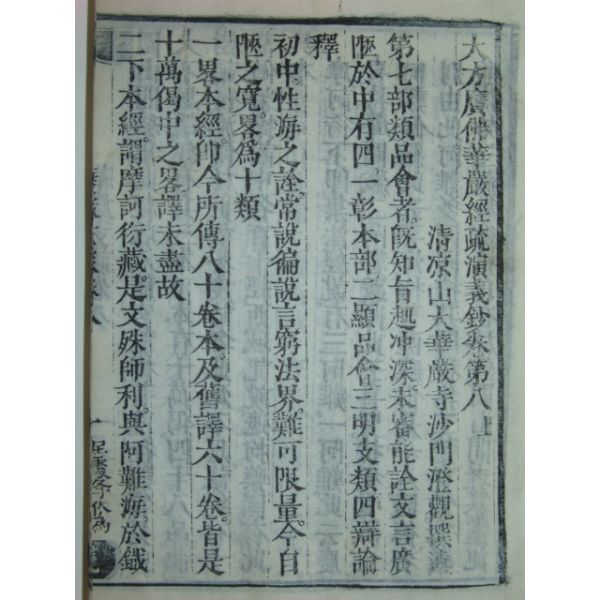 大方廣佛華嚴經疏演義鈔卷第八上
清凉山大華嚴寺沙門澄觀撰述
第七部類品會者旣知旨趣冲深未審能詮文言廣
陿於中有四一彰本部二顯品會三明支類四辯論
釋
初中性海之詮常說徧說言窮法界難可限量今自
陿之寬畧爲十類
一畧本經卽今所傳八十卷本及舊譯六十卷皆是
十萬偈中之畧譯未盡故
二下本經謂摩訶衍藏是文殊師利與阿難海於鐵